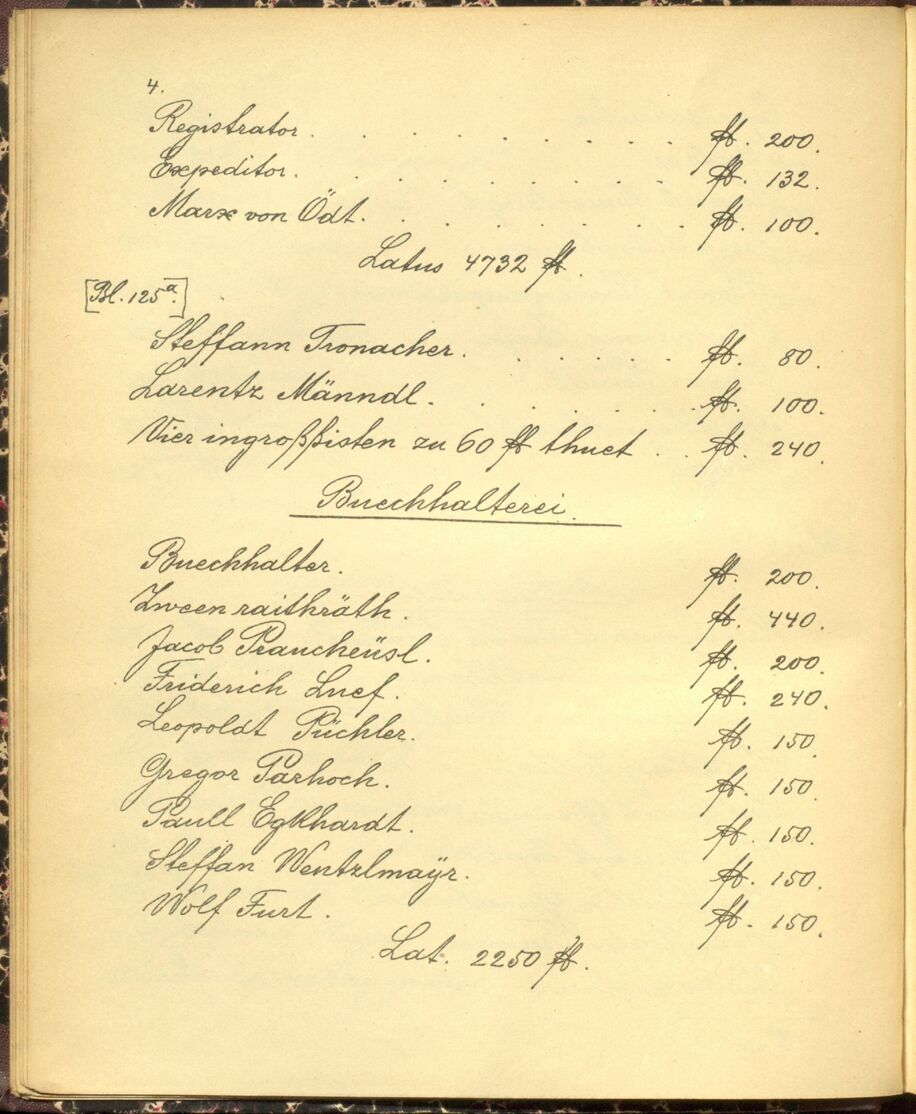 4.
Registrator . . . . . . . . . fl. 200.
Expeditor. . . . . . . . . . fl. 132.
Marx von Ödt. . . . . . . . fl. 100.
Latus 4732 fl.
[Bl. 125a.]
Steffann Tronacher. . . . . . . fl. 80.
Larentz Männdl. . . . . . . fl. 100.
Vier ingroßßisten zu 60 fl thuet . . fl. 240.
Buechhalterei.
Buechhalter. fl. 200.
Zween raithräth. fl. 440.
Jacob Praucheüsl. fl. 200.
Friderich Luef. fl. 240.
Leopoldt Püchler. fl. 150.
Gregor Parhoch. fl. 150.
Paull Egkhardt. fl. 150.
Steffan Wentzlmayr. fl. 150.
Wolf Furt. fl. 150.
Lat. 2250 fl.